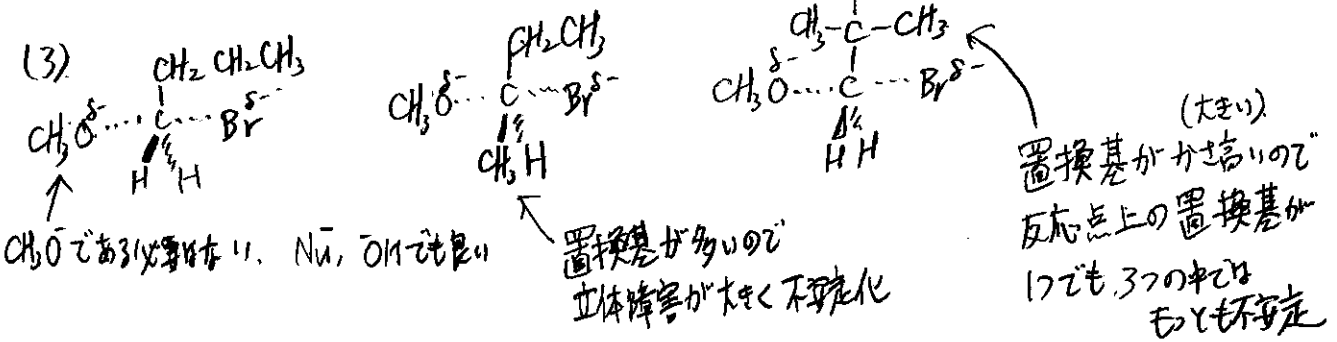 (3)
CH₂CH₂CH₃
CH₃O^δ- ····· C ····· Br^δ-
H H
CH₃O⁻である必要はない、Nu⁻, ⁻OHでも良い
CH₂CH₃
CH₃O^δ- ···· C ···· Br^δ-
CH₃ H
置換基が多いので
立体障害が大きく不安定化
CH₃-C-CH₃
CH₃O^δ- ···· C ···· Br^δ-
H H
(大きい)
置換基がかさ高いので
反応点上の置換基が
1つでも、3つの中では
もっとも不安定